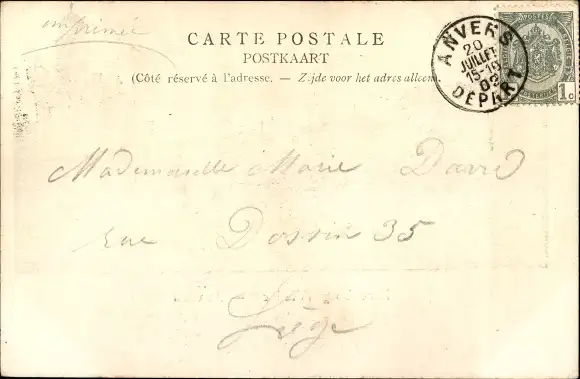 imprimée
CARTE POSTALE
POSTKAART
(Côté réservé à l'adresse. — Zijde voor het adres alleen.)
ANVERS
20
JUILLET
15-19
02
DÉPART
POSTES
1c
Mademoiselle Marie David
rue Dossin 35
Liège